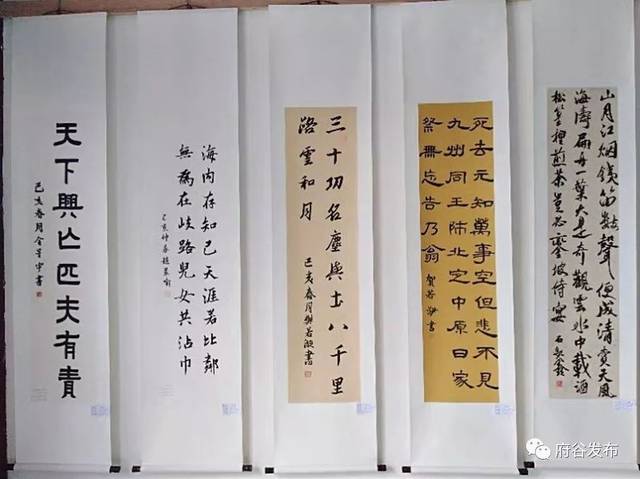 天下興亡匹夫有責
己亥春月金星宇書
海内存知己天涯若比鄰
無為在歧路兒女共沾巾
己亥仲春趙
三十功名塵與土八千里
路雲和月
己亥春月
死去元知萬事空但悲不見
九州同王師北定中原日家
祭無忘告乃翁
賀若静書
山月江烟鐵笛數聲便成清賞天風
海濤扁舟一葉大是奇觀雲水中載酒
松篁裡煎茶豈必鑾坡侍宴
府谷发布